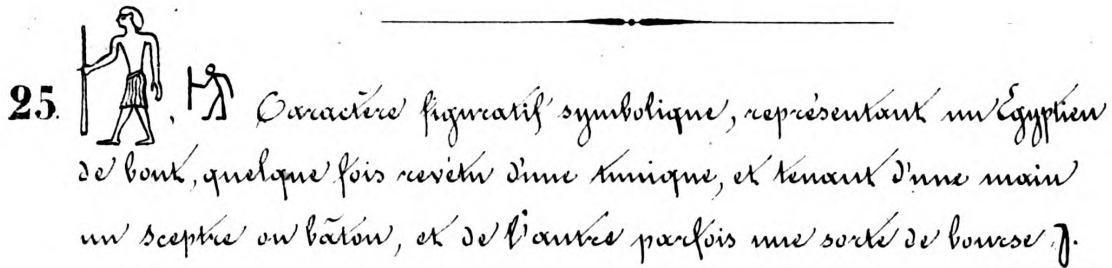 25. 𓀙, 𓀙 Caractère figuratif symbolique, représentant un Égyptien
de bout, quelque fois revétu d'une tunique, et tenant d'une main
un sceptre ou bâton, et de l'autre parfois une sorte de bourse 𓋲.